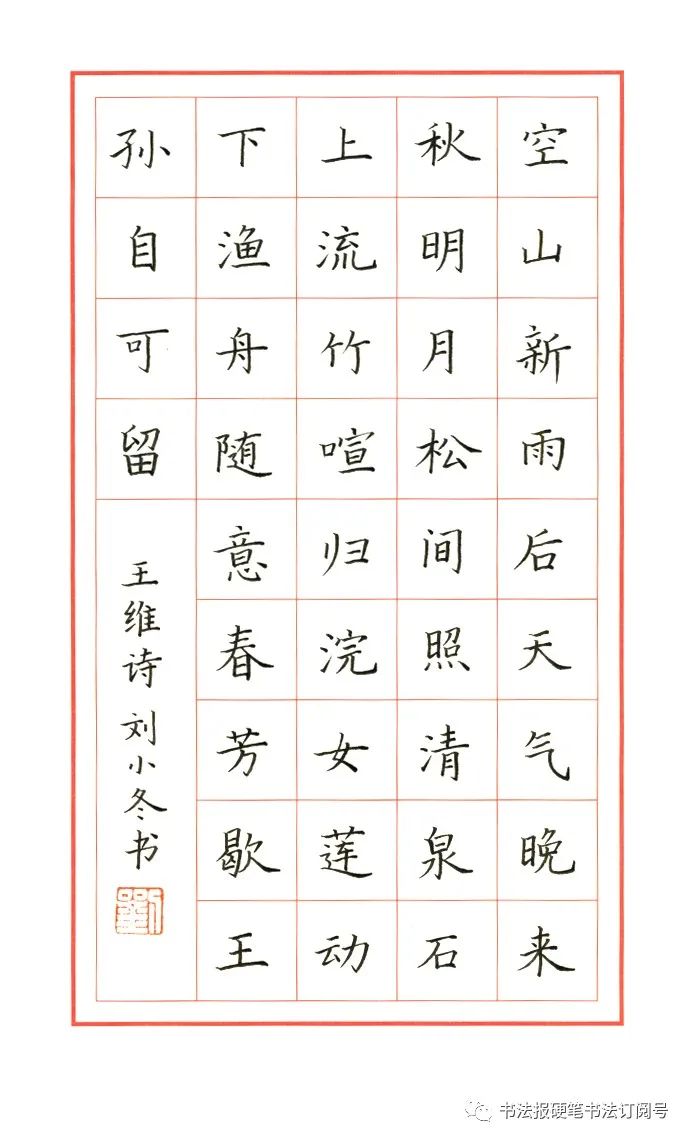 空山新雨后天气晚来
秋明月松间照清泉石
上流竹喧归浣女莲动
下渔舟随意春芳歇王
孙自可留
王维诗 刘小冬书
劉
书法报硬笔书法订阅号